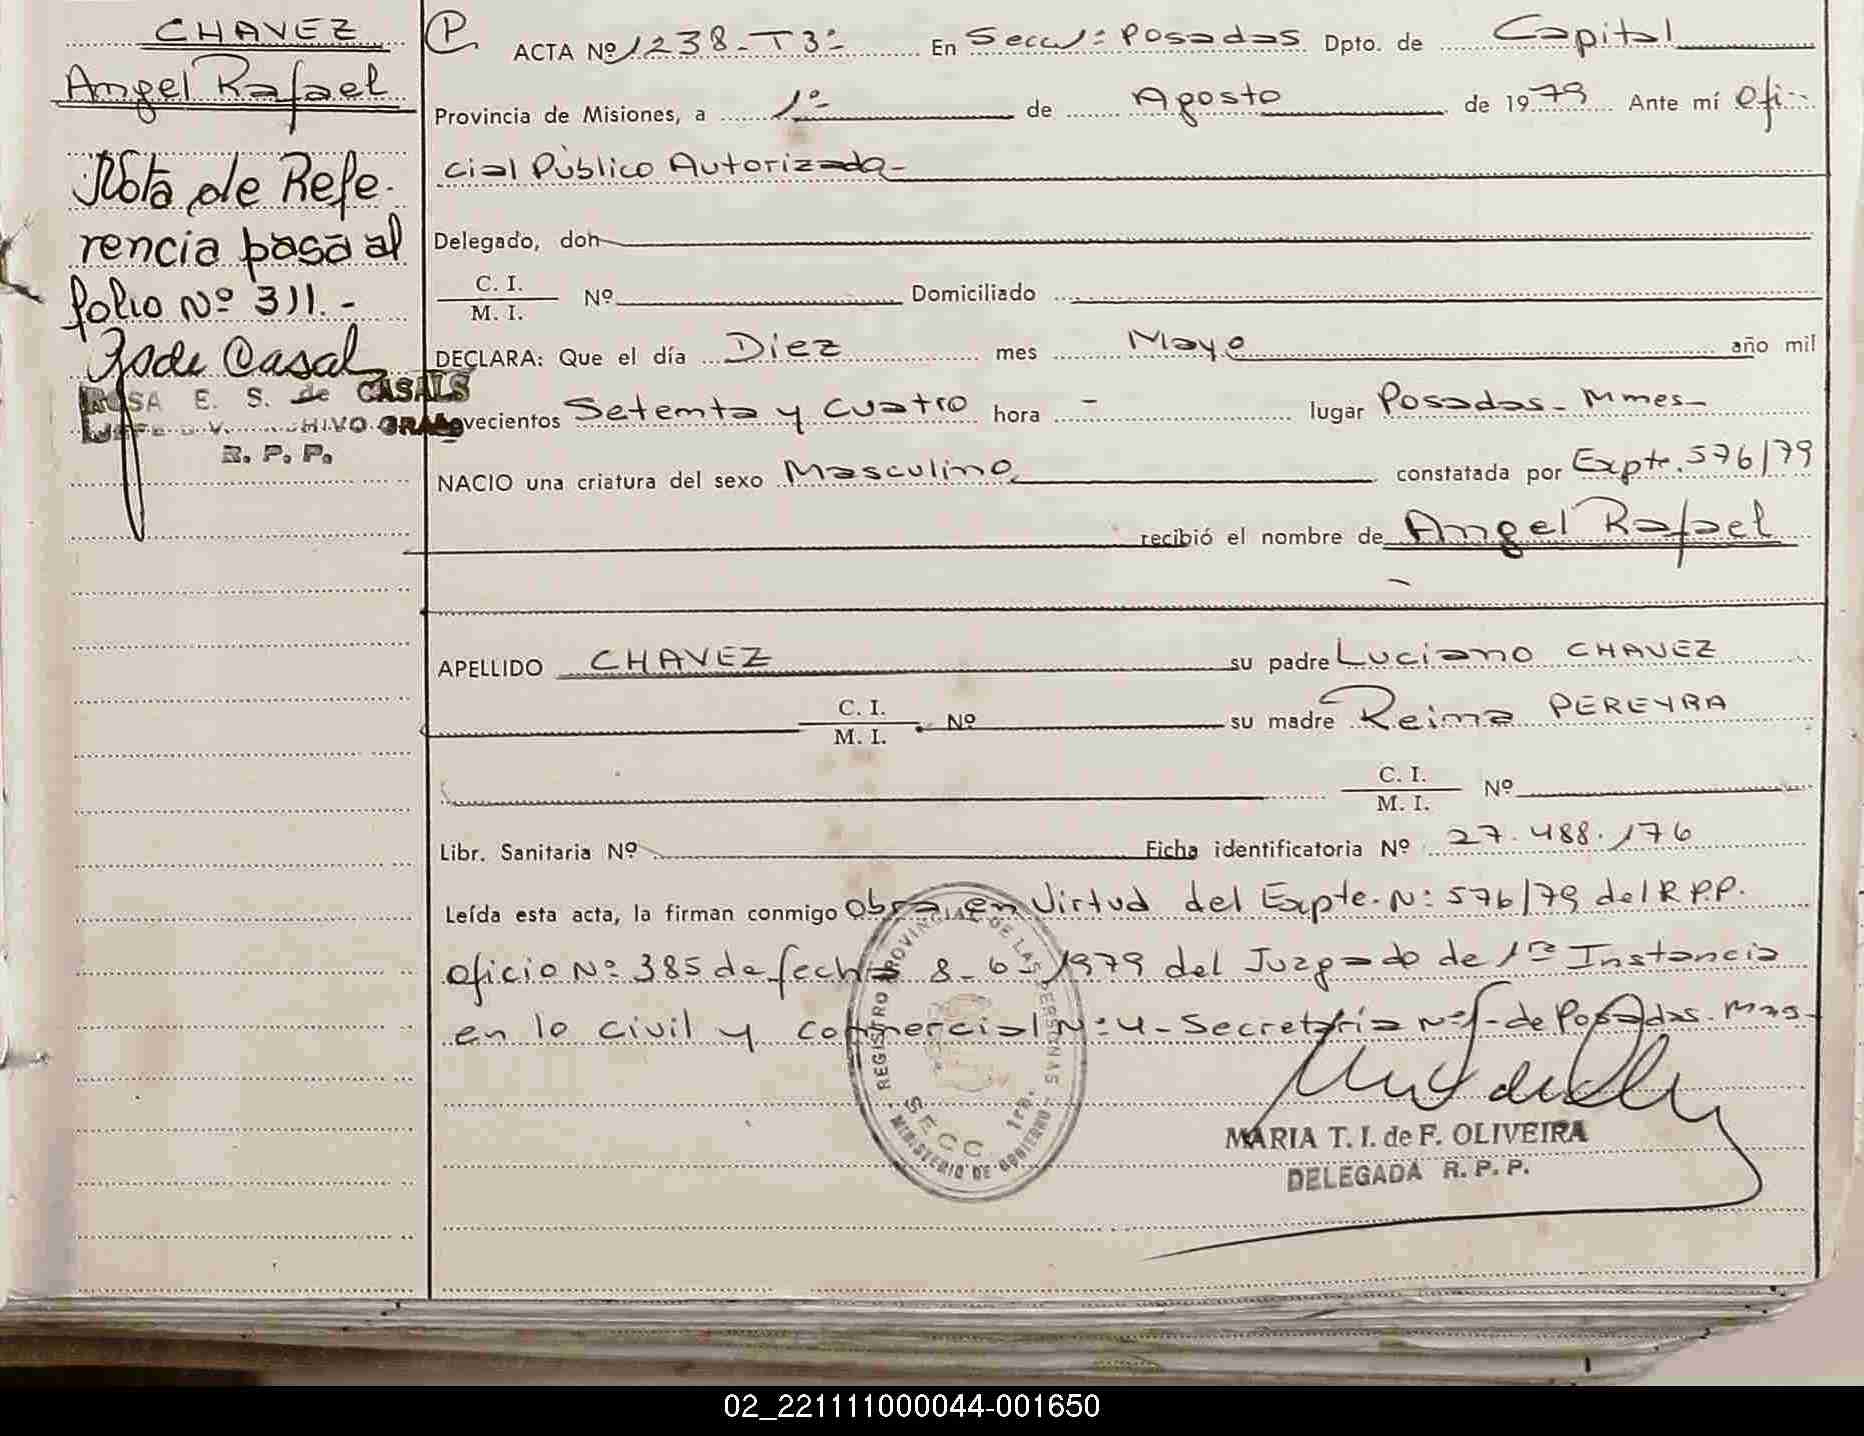 CHAVEZ
Angel Rafael
Nota de Refe-
rencia pasa al
folio Nº 311.-
ROSA E. S. de CASALS
R. P. P.
P
ACTA Nº 1238-T3º- En Secc 1º Posadas Dpto. de Capital
Provincia de Misiones, a 1º- de Agosto de 1979 Ante mí Ofi-
cial Público Autorizada-
Delegado, don
C. I.
M. I. Nº Domiciliado
DECLARA: Que el día Diez mes Mayo año mil
novecientos Setenta y Cuatro hora - lugar Posadas- Mnes-
NACIO una criatura del sexo Masculino constatada por Expte. 576/79
recibió el nombre de Angel Rafael
APELLIDO CHAVEZ su padre Luciano CHAVEZ
C. I.
M. I. Nº su madre Reina PEREYRA
C. I.
M. I. Nº
Libr. Sanitaria Nº Ficha identificatoria Nº 27.488.176
Leída esta acta, la firman conmigo Obra en Virtud del Expte. Nº 576/79 del R.P.P.
Oficio Nº 385 de fecha 8-6-1979 del Juzgado de 1ra Instancia
en lo civil y comercial Nº 4- Secretaria Nº 1- de Posadas. Mns-
REGISTRO PROVINCIAL DE LAS PERSONAS
SECC 1ra.
MINISTERIO DE GOBIERNO
MARIA T. I. de F. OLIVEIRA
DELEGADA R. P. P.
02_221111000044-001650